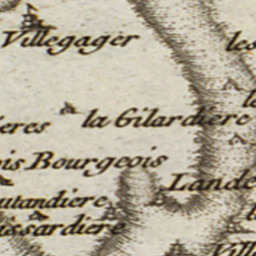 Villegager
les
la Gilardiere
ieres
ois Bourgeois
Lande
utandiere
issardiere
Ville